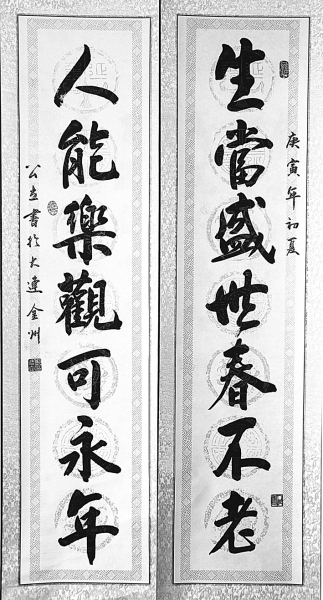 庚寅年初夏
生當盛世春不老
人能樂觀可永年
公立書於大連金州